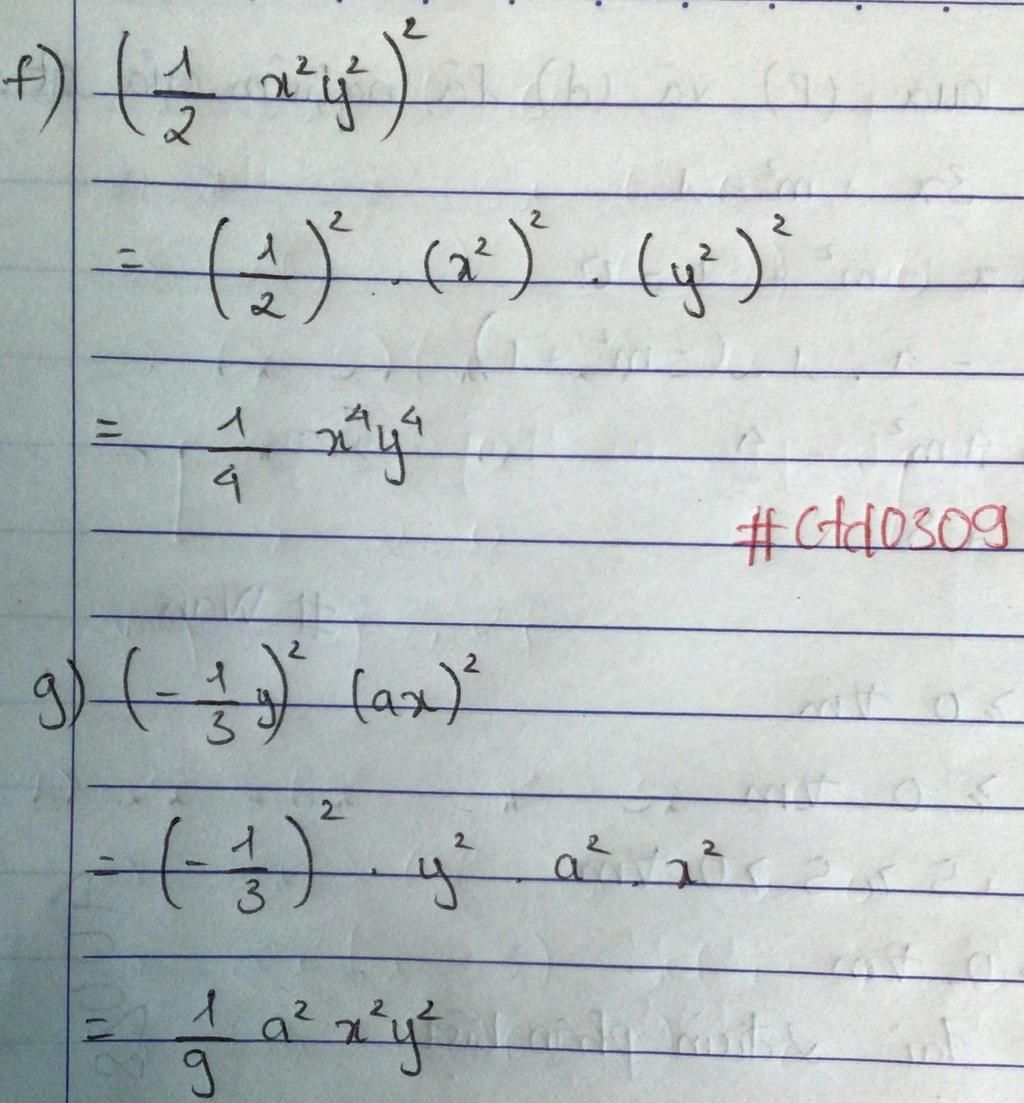 f) (1/2 x²y²)²
= (1/2)² . (x²)² . (y²)²
= 1/4 x⁴y⁴
#Ctd0309
g) (-1/3 y)² (ax)²
= (-1/3)² . y² . a² . x²
= 1/9 a² x²y²